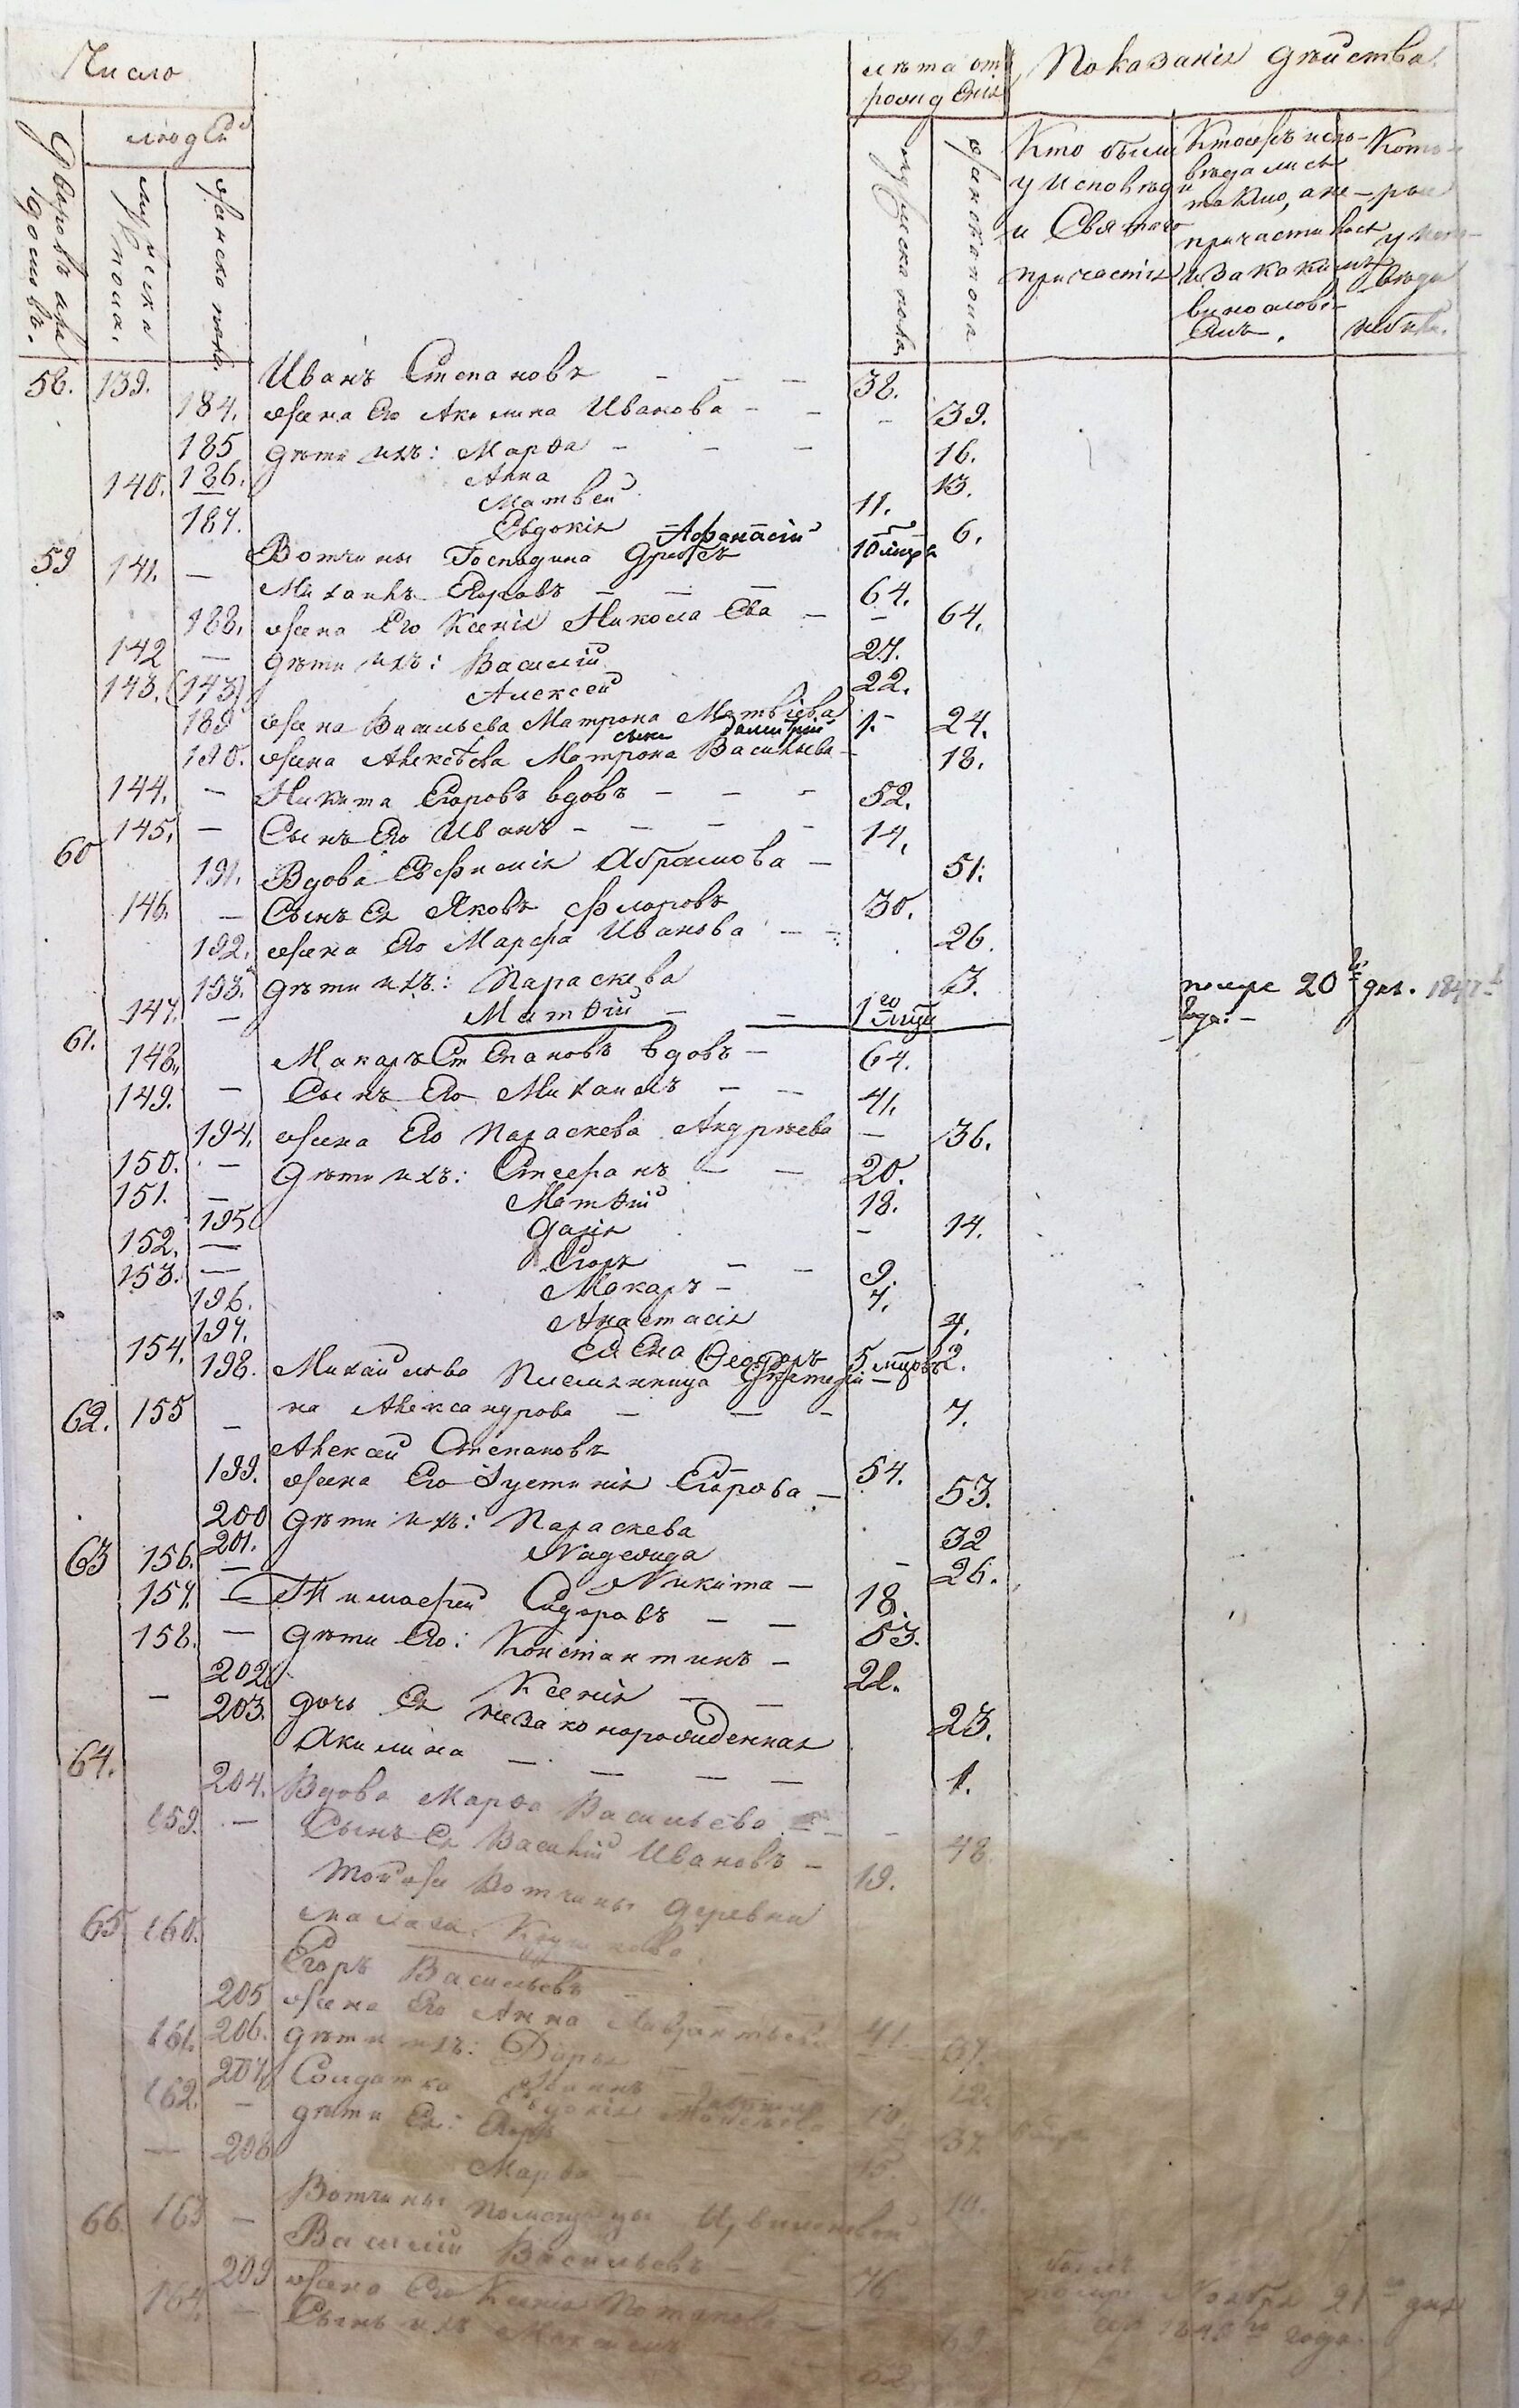 Число
лѣта отъ рожденія
Показанія дѣйства.
людей
Дворовъ или домовъ.
мужеска пола.
женска пола.
мужеска пола.
женска пола.
Кто были у исповѣди и Святаго причастія
Кто жъ исповѣдались токмо, а не причастились и за какимъ винословіемъ.
Которые у исповѣди не были.
58. 139. Иванъ Степановъ — — — 38.
184. жена Его Акилина Иванова — — - 39.
185 дѣти ихъ: Марѳа — — — 16.
186. Анна 13.
140. — Матвей 11.
187. Евдокія 6.
Афанасій 10 мцрѣ
59 Вотчины Господина
141. — Михаилъ Егоровъ — — — 64.
188. жена Его Ксенія Николаева — — 64.
142 — дѣти ихъ: Василій 27.
143. (143) Алексей 22.
189 жена Васильева Матрона Матвіева — 24.
сынъ Димитрій 1.
190. жена Алексѣева Матрона Васильева — 18.
144. — Никита Егоровъ вдовъ — — — 52.
145. — Сынъ Его Иванъ — — — — 14.
60 191. Вдова Евфимія Абрамова — 51.
146. — Сынъ Ея Яковъ Флоровъ 30.
192. жена Его Марфа Иванова — — 26.
193. дѣти ихъ: Параскева 3. помре 20 дек. 1847 года. —
147. — Матѳій — — 1го мцa
61. 148. Макаръ Степановъ вдовъ — 64.
149. — Сынъ Его Михаилъ — — 41.
194. жена Его Параскева Андрѣева — 36.
150. — дѣти ихъ: Стефанъ — — 20.
151. — Матѳій 18.
195. Дарія — 14.
152. — Егоръ — — 9.
153. — Макаръ — 7.
196. Анастасія 4.
197. Елена 2.
154. Ѳеодоръ 5 мцовъ
198. Михайлова племянница
на Александрова — — — 7.
62. 155 — Алексей Степановъ 54.
199. жена Его Іустинія Егорова — 53.
200 дѣти ихъ: Параскева 32
201. Надежида — 26.
156. — Никита — 18.
63 157. — Тимофей Сидоровъ — — 53.
158. — дѣти Его: Константинъ — 21.
202. Ксенія — — 23.
— 203. дочь Ея незаконорожиденная
Акилина — — — — 1.
64. 204. Вдова Марѳа Васильева — — 48
159. — Сынъ Ея Василій Ивановъ — 19.
Той же Вотчины деревни
65 160. Егоръ Васильевъ 41.
205 жена Его Анна 37.
206. дѣти ихъ: Дарья 12.
161. Иванъ 10.
207. Солдатка Евдокія 37.
162. — дѣти Ея: Егоръ 15.
— 208 Марѳа — 10.
Вотчины помещицы
66. 163 — Василій Васильевъ 76
209 жена Его Ксенія Потапова — 69.
164. — Сынъ ихъ Максимъ 52
помре Ноября 21го дня
184 го года.